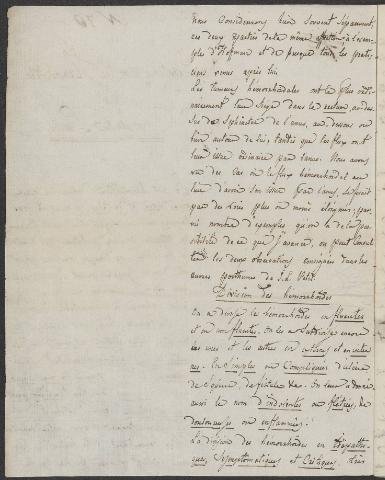 Nous Considerons bien souvent séparément
ces deux parties de la même affection, à l'exem-
ple d'Hoffman et de presque tous les prati-
ciens venus après lui
Les tumeurs hémorhoïdales ont le plus ordi-
nairement leur Siege dans le rectum, au des-
sus du Sphincter de l'anus, au dessous ou
bien autour de lui, tandis que les flux ont
leur issue ordinaire par l'anus. Nous avons
vu des Cas où le flux hémorrhoïdal au
lieu d'avoir son issue par l'anus, se fesait
par des voies plus ou moins éloignées; par-
mi nombre d'exemples qu'on a de la pos-
sibilité de ce que j'avance, on peut Consul-
ter les deux observations consignées dans les
œuvres posthumes de J. L. Petit.
Division des hémorrhoïdes
On a divisé les hémorrhoïdes en fluentes
et en non fluentes. On les a subdivisé encore
les unes et les autres en internes et en exter-
nes. En Simples ou Compliquées d'ulcère
de Squirre, de fistule &c. On leur a donné
aussi le nom d'indolentes ou flétries, de
douloureuses ou enflammées.
La division des hémorrhoïdes en Idiopathi-
ques, Symptomatiques et Critiques,